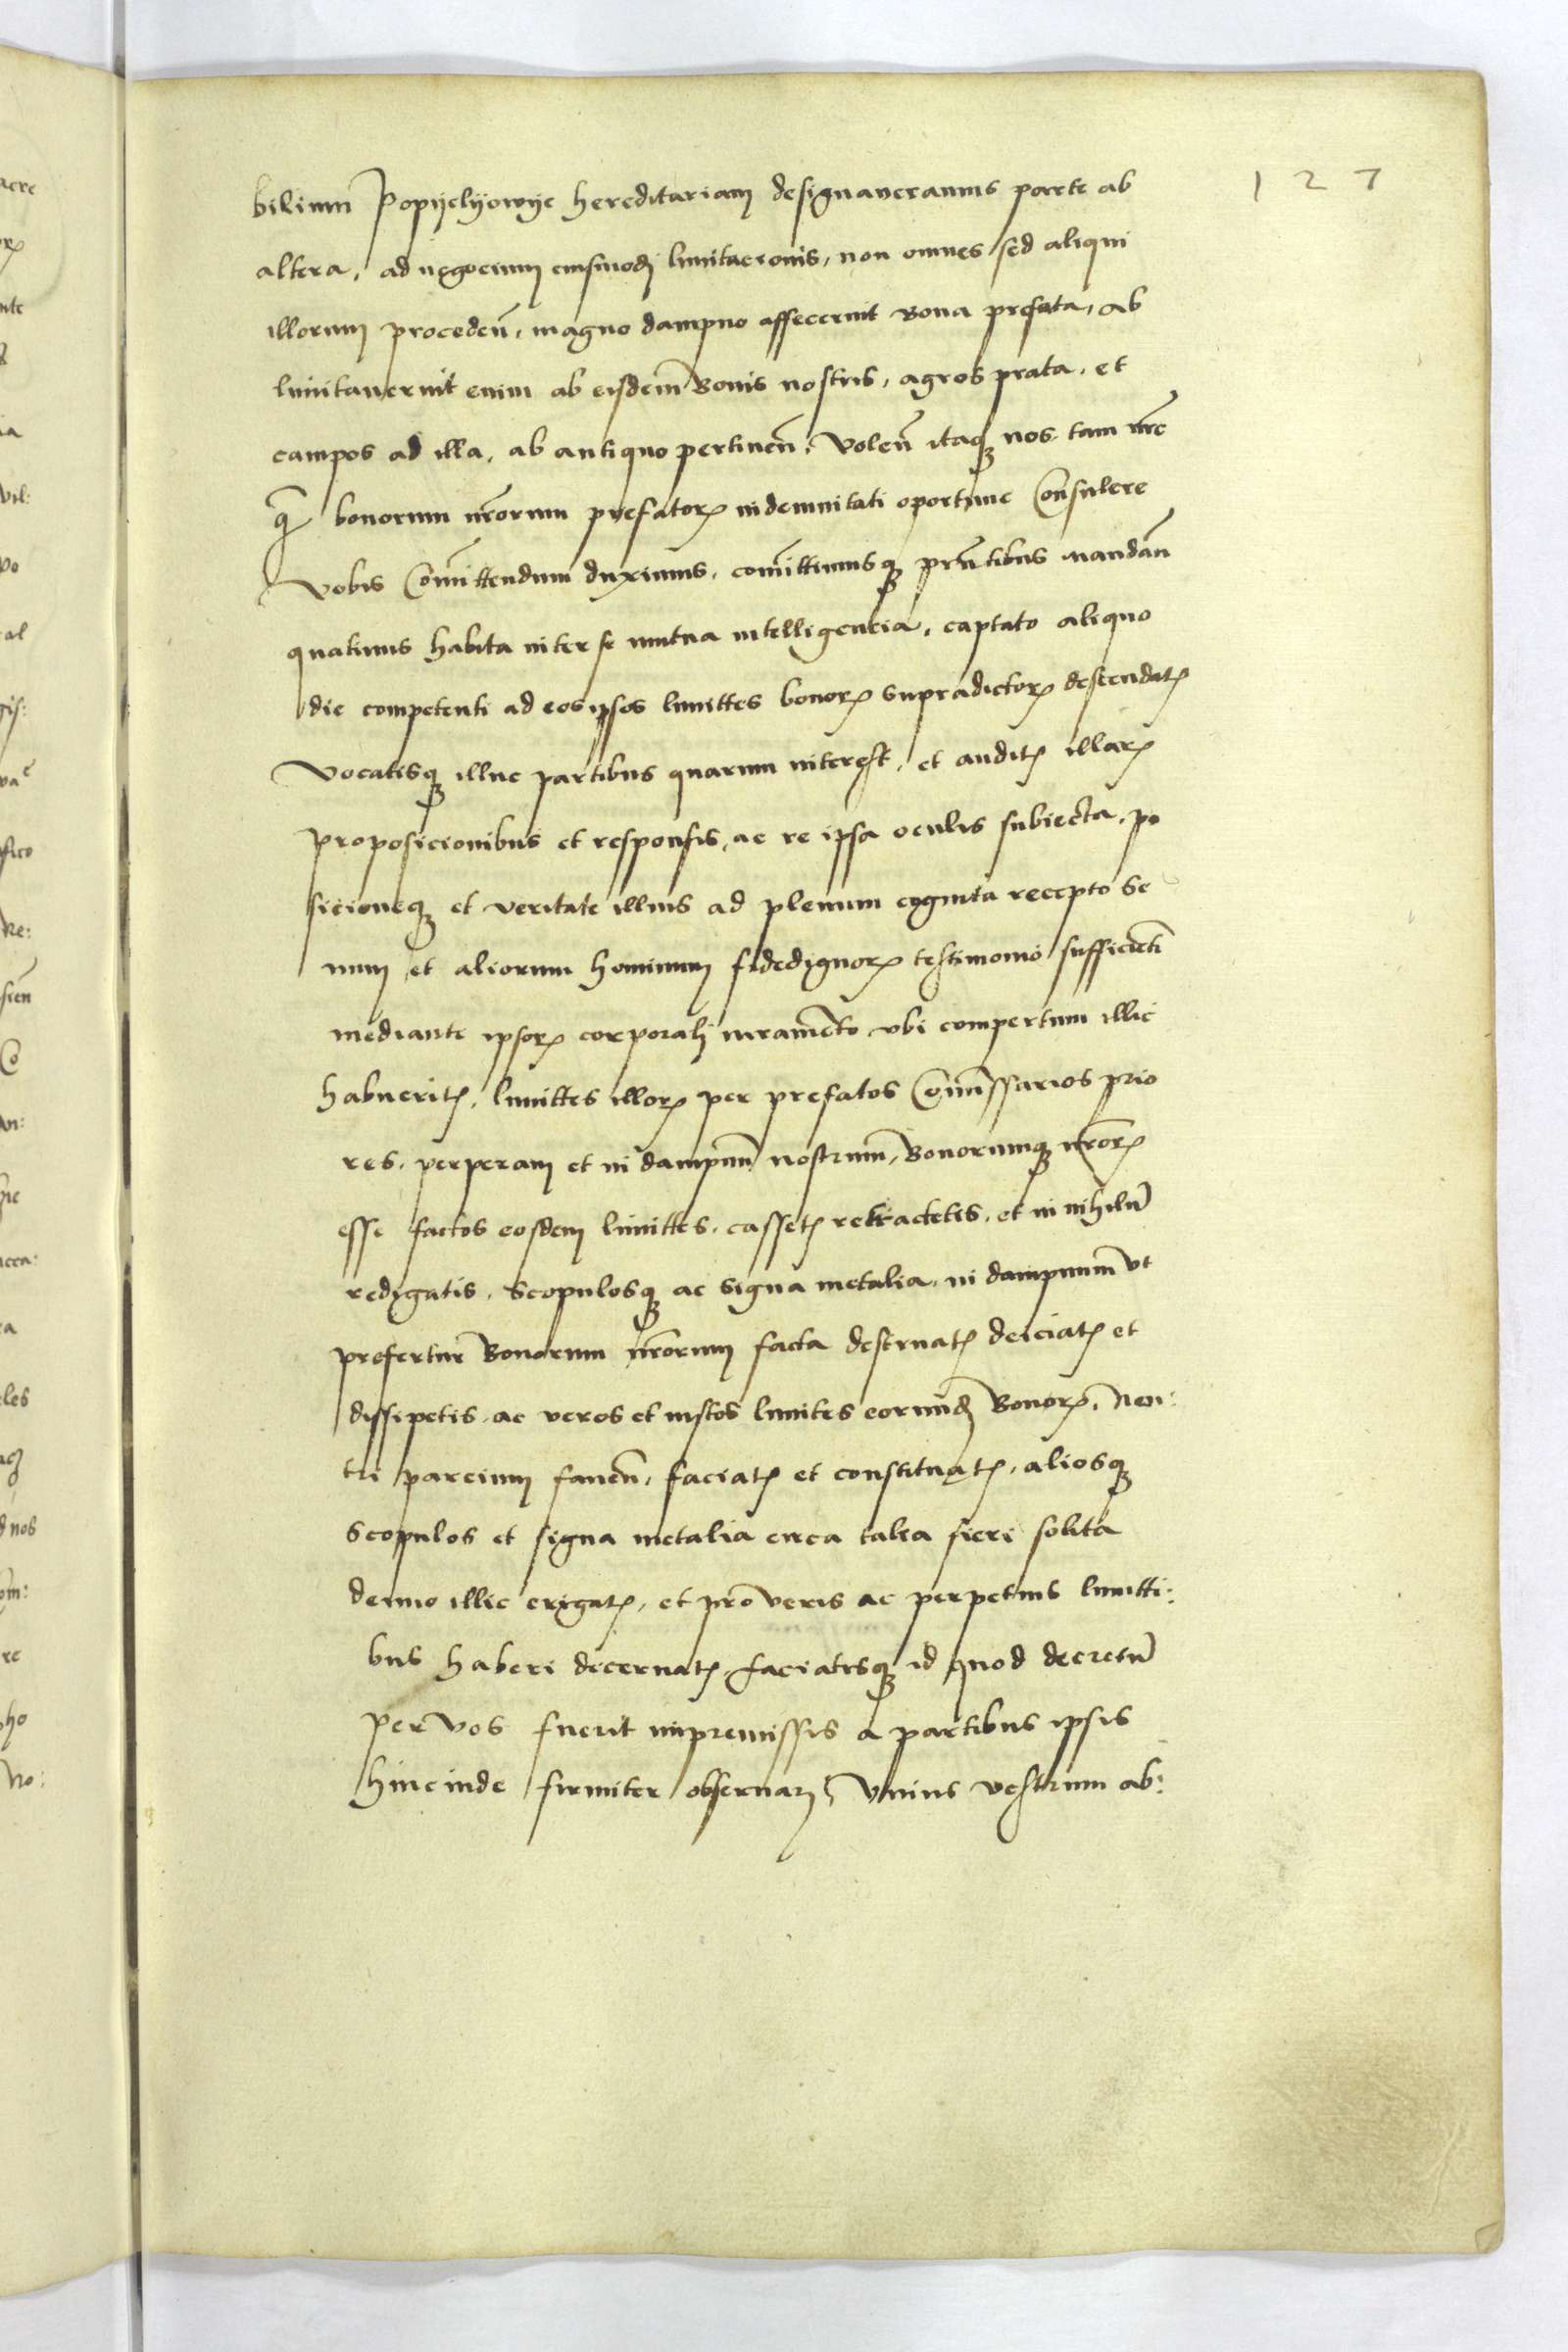 127
bilium Popyelyowye hereditariam designaveramus parte ab
altera, ad negocium eiusmodi limitacionis, non omnes sed aliqui
illorum proceden̄, magno dampno affecerunt Bona prefata, ab
limitaverunt enim ab eisdem Bonis nostris, agros prata, et
campos ad illa, ab antiquo pertinen̄, Volen̄ itaqꝫ nos tam nr̄e
q̄ bonorum nr̄orum prefatorꝝ indemnitati oportune Consulere
Vobis Com̄ittendum duximus, com̄ittimusqꝫ pr̄ntibus mandan̄
quatinus habita inter se mutua intelligencia, captato aliquo
die competenti ad eos ipsos limittes bonorꝝ supradictorꝝ descendatꝭ
Vocatisqꝫ illuc partibus quarum interest, et auditꝭ illarꝝ
proposicionibus et responsis, ac re ipsa oculis subiecta, po
sicioneqꝫ et veritate illius ad plenum cognita recepto Se
num et aliorum hominum fidedignorꝝ testimonio sufficienti
mediante ipsorꝝ corporali iuramento ubi compertum illic
habueritꝭ, limittes illorꝝ per prefatos Com̄issarios prio
res, perperam et in dampnum nostrum, Bonorumqꝫ nr̄orꝝ
esse factos eosdem limittes, cassetꝭ retractetis, et in nihilum̄
redigatis, Scopulosqꝫ ac signa metalia, in dampnum ut
prefertur Bonorum nr̄orum facta destruatꝭ deiciatꝭ et
dissipetis, ac veros et iustos limites eorund̄ Bonorꝝ, neu:
tri parcium faven̄, faciatꝭ et constituatꝭ, aliosqꝫ
Scopulos et signa metalia circa talia fieri solita
denuo illic erigatꝭ, et pro veris ac perpetuis limitti:
bus haberi decernatꝭ, faciatisqꝫ id quod decretū
per vos fuerit inpremissis a partibus ipsis
hincinde firmiter observari, Unius vestrum ab: